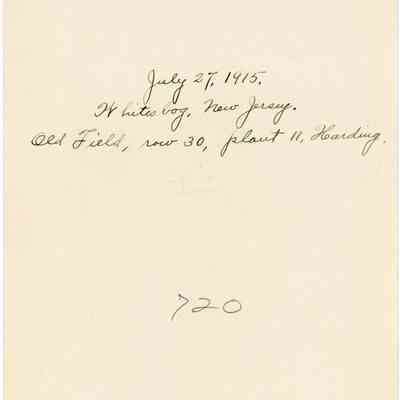 July 27, 1915.
Whitesbog, New Jersey.
Old Field, row 30, plant 11, Harding.
720